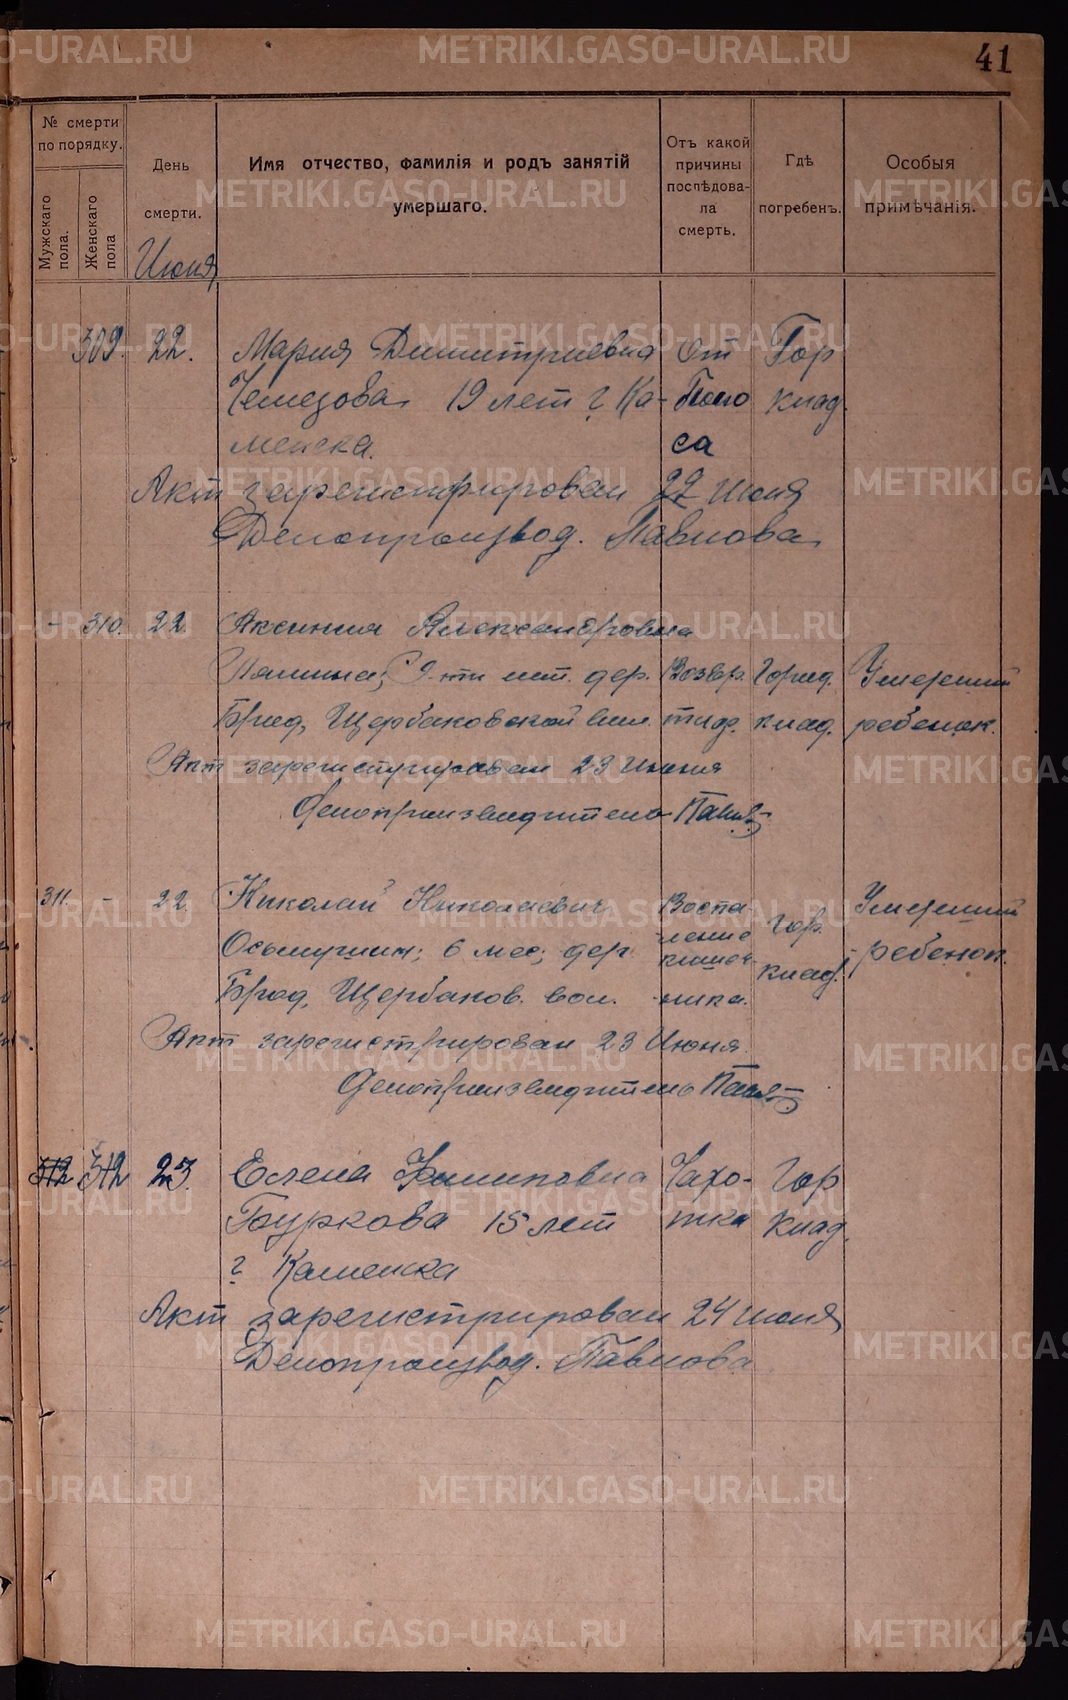 41
№ смерти по порядку.
Мужскаго пола.
Женскаго пола
День смерти.
Имя отчество, фамилія и родъ занятій умершаго.
Отъ какой причины послѣдовала смерть.
Гдѣ погребенъ.
Особыя примѣчанія.
Июня
309. 22. Мария Димитриевна От Гор
Чемезова 19 лет г. Ка- клад.
менска. са
Акт зарегистрирован 22 июня
Делопроизвод. Павлова
- 310. 22 Аксиния Александровна
дер. Возвр. Город. Умерший
Брод, Щербаковской вол. тиф. клад. ребенок.
Акт зарегистрирован 23 Июня
Делопроизводитель
311. - 22 Николай Николаевич Воспа- Умерший
Осьмушин; 6 мес; дер. ление Гор. ребенок.
кишеч- клад.
Брод, Щербаков. вол. ника.
Акт зарегистрирован 23 Июня
Делопроизводитель
312 312 23. Елена Филиповна Чахо- Гор
Буркова 15 лет тка клад.
г. Каменска
Акт зарегистрирован 24 июня
Делопроизвод. Павлова
METRIKI.GASO-URAL.RU